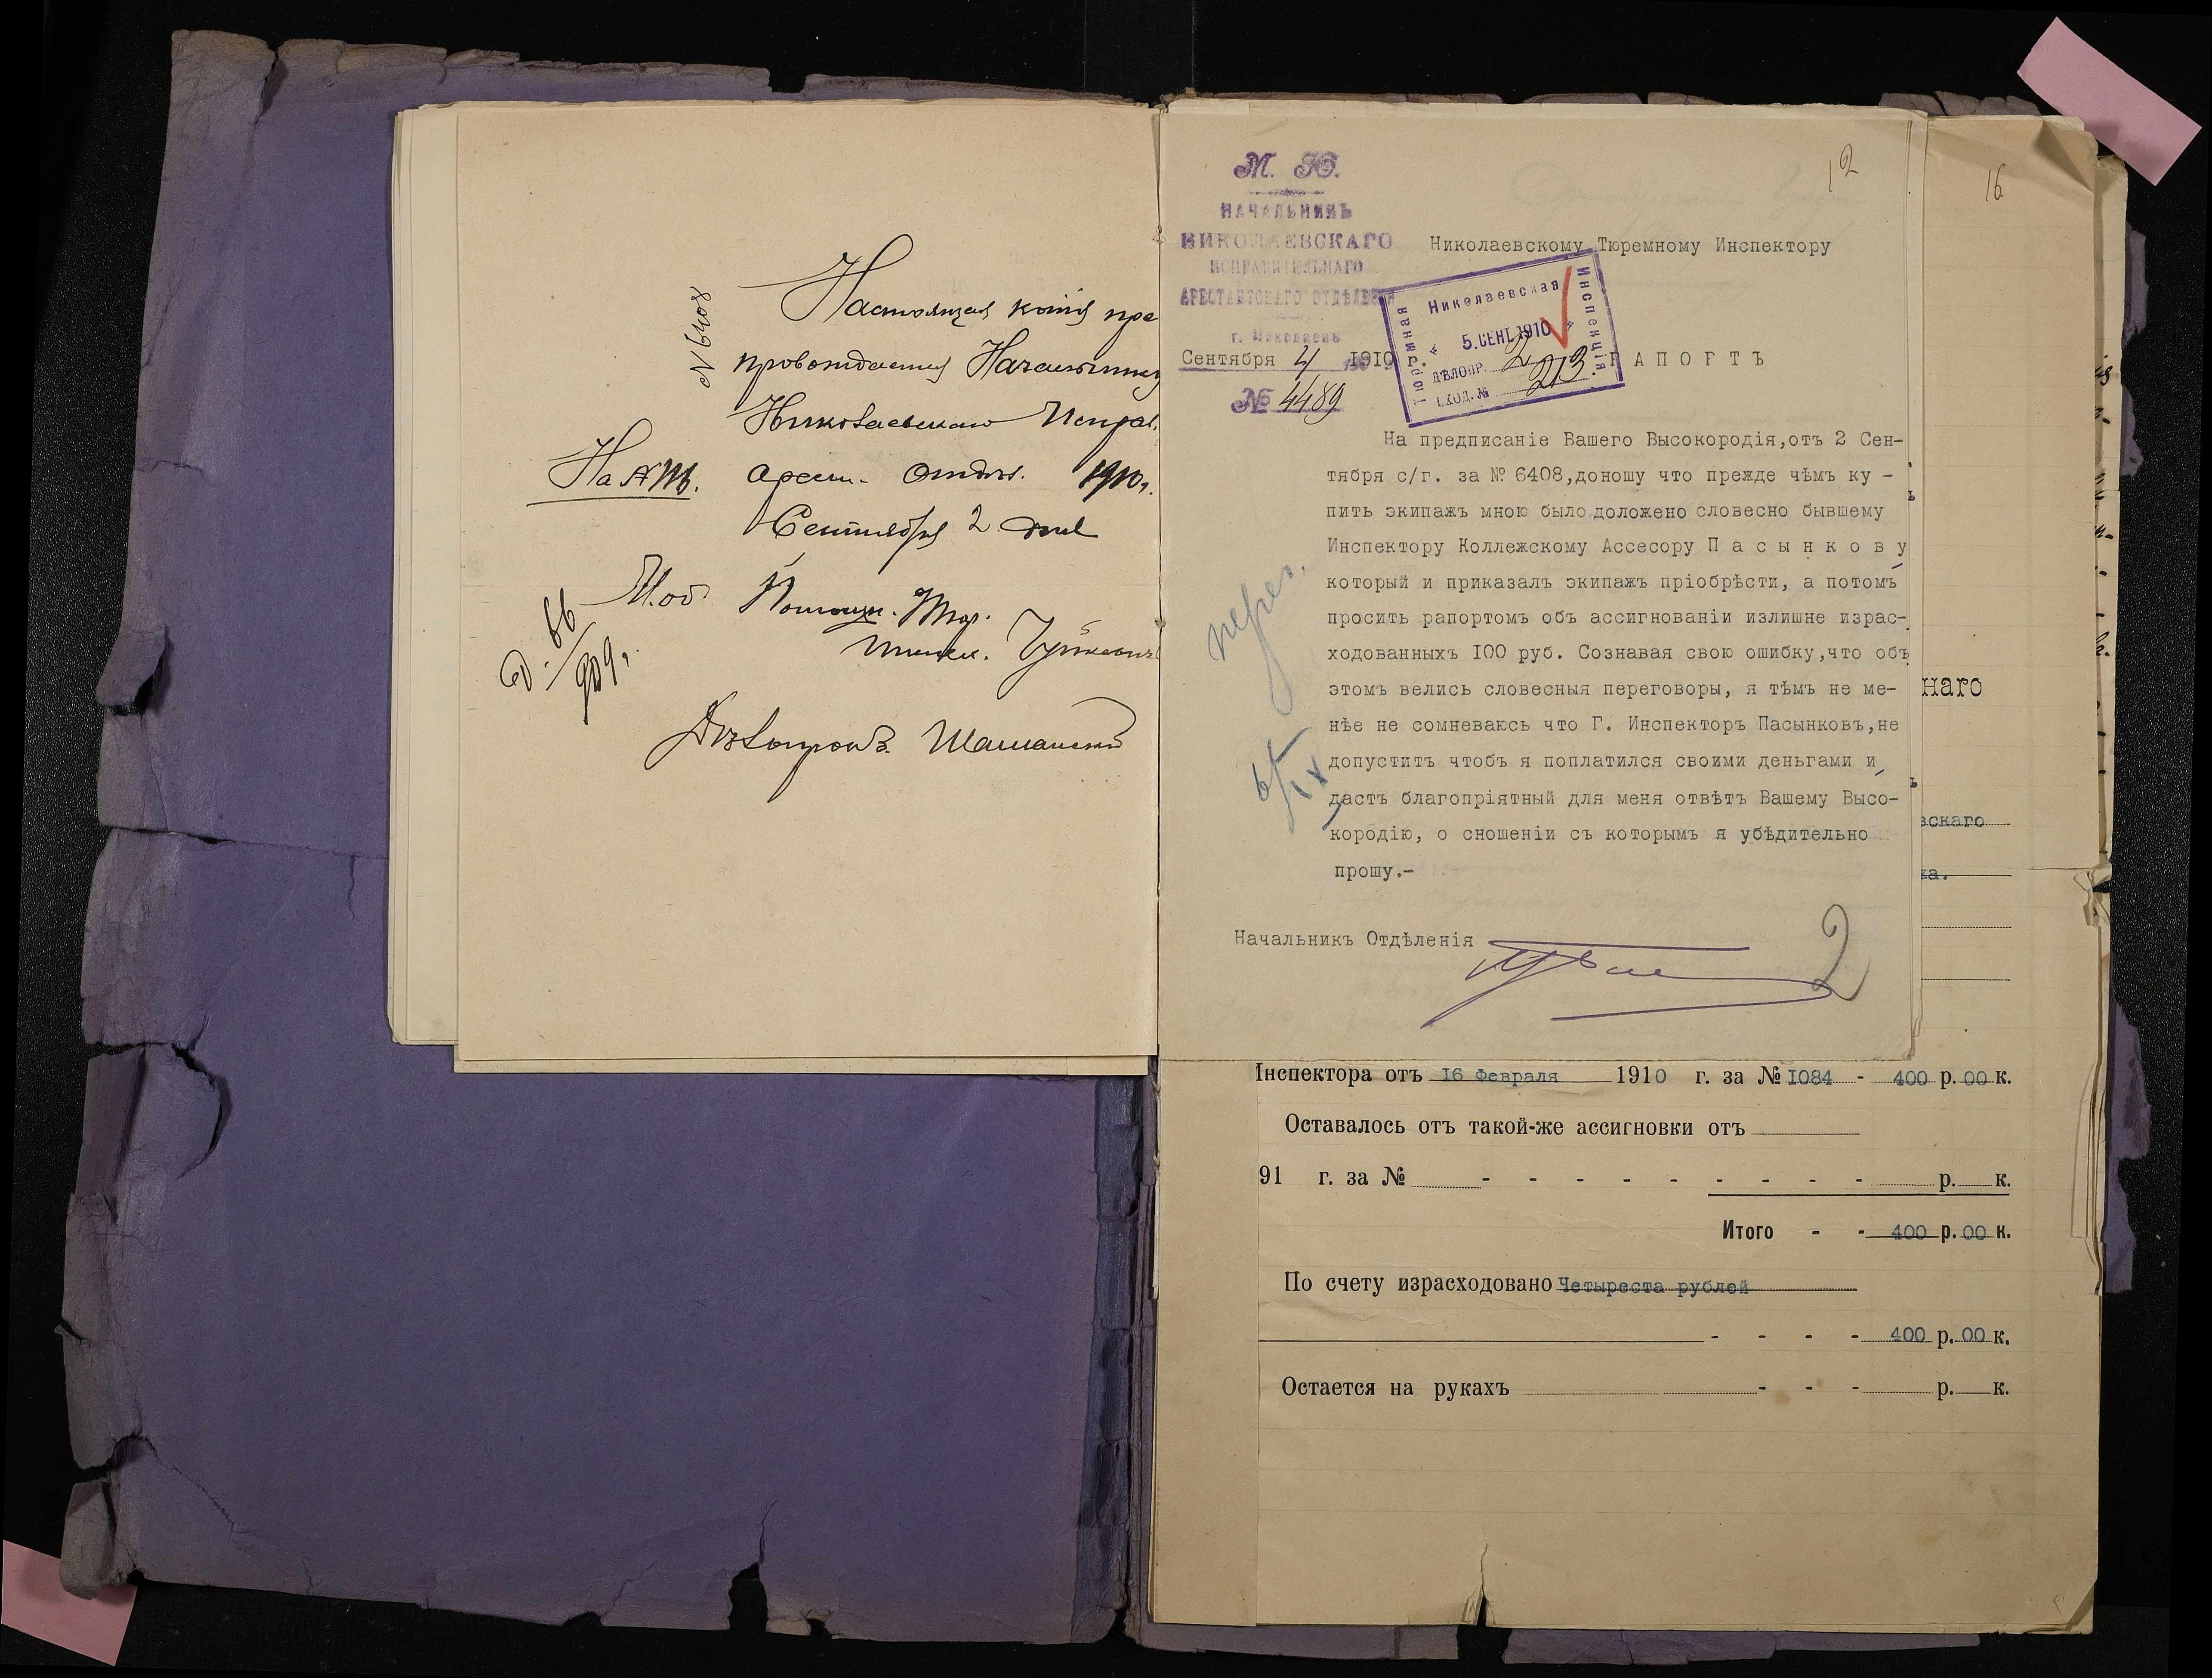 № 6408
Настоящая копія пре
провождается Начальнику
Николаевскаго Исправ.
На А.Т.В. арест. отдѣл. 1910 г.
Сентября 2 дня
И. об. Помощн. Тюр.
Инспек.
Д. 66/909 г.
Дѣлопроизв.
М. Ю.
НАЧАЛЬНИКЪ
НИКОЛАЕВСКАГО
ИСПРАВИТЕЛЬНАГО
АРЕСТАНТСКАГО ОТДѢЛЕНІЯ
г. Николаевъ
Сентября 4 1910 г.
№ 4489
12
Николаевскому Тюремному Инспектору
Николаевская
Тюремная
Инспекція
" 5.СЕНТ.1910 "
ДѢЛОПР. 2
ВХОД. № 213.
РАПОРТЪ
На предписаніе Вашего Высокородія,отъ 2 Сен-
тября с/г. за № 6408,доношу что прежде чѣмъ ку -
пить экипажъ мною было доложено словесно бывшему
Инспектору Коллежскому Ассесору Пасынкову
который и приказалъ экипажъ пріобрѣсти, а потомъ
просить рапортомъ объ ассигнованіи излишне израс-
ходованныхъ I00 руб. Сознавая свою ошибку,что объ
этомъ велись словесныя переговоры, я тѣмъ не ме-
нѣе не сомневаюсь что Г. Инспекторъ Пасынковъ,не
допуститъ чтобъ я поплатился своими деньгами и
дастъ благопріятный для меня отвѣтъ Вашему Высо-
кородію, о сношеніи съ которымъ я убѣдительно
прошу.-
Начальникъ Отдѣленія
2
16
наго
вскаго
ка.
Инспектора отъ I6 Февраля 1910 г. за № I084 - 400 р. 00 к.
Оставалось отъ такой-же ассигновки отъ
91 г. за № - - - - - - - - - р. к.
Итого - - 400 р. 00 к.
По счету израсходовано Четыреста рублей
- - - - 400 р. 00 к.
Остается на рукахъ - - - р. к.